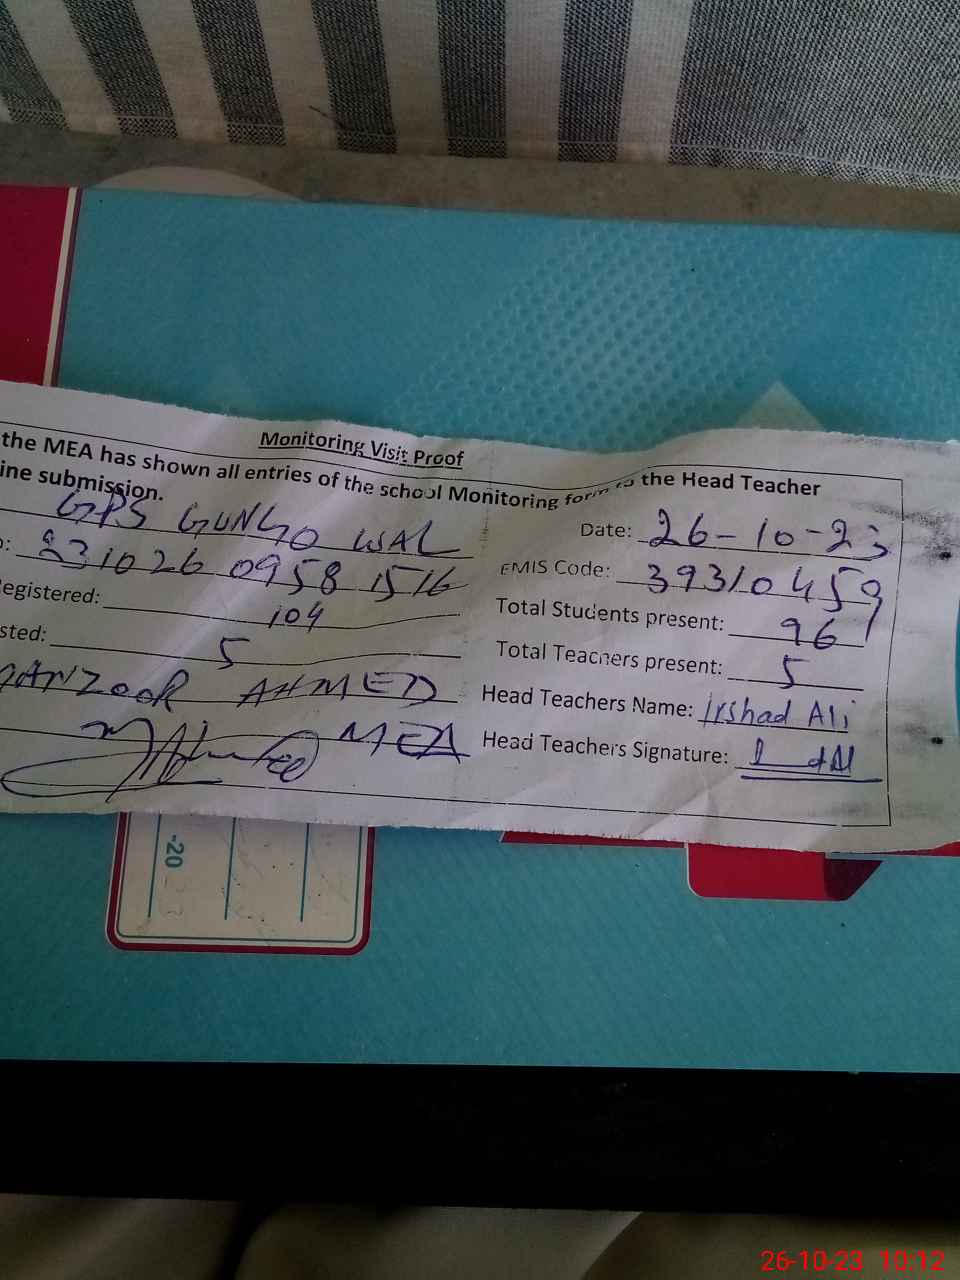 Monitoring Visit Proof
the MEA has shown all entries of the school Monitoring form to the Head Teacher
ine submission.
GPS GUNGO WAL
Date: 26-10-23
o: 231026 0958 1516
EMIS Code: 39310459
egistered: 104
Total Students present: 96
sted: 5
Total Teachers present: 5
MANZOOR AHMED
Head Teachers Name: Irshad Ali
MEA
Head Teachers Signature:
-20
26-10-23 10:12